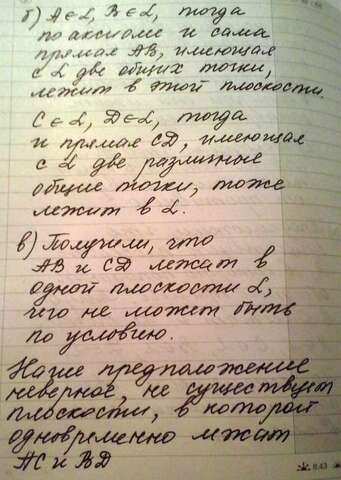 б) A ∈ α, B ∈ α, тогда
по аксиоме и сама
прямая AB, имеющая
с α две общих точки,
лежит в этой плоскости.
C ∈ α, D ∈ α, тогда
и прямая CD, имеющая
с α две различные
общие точки, тоже
лежит в α.
в) Получили, что
AB и CD лежат в
одной плоскости α,
чего не может быть
по условию.
Наше предположение
неверное, не существует
плоскости, в которой
одновременно лежат
AC и BD
8.43